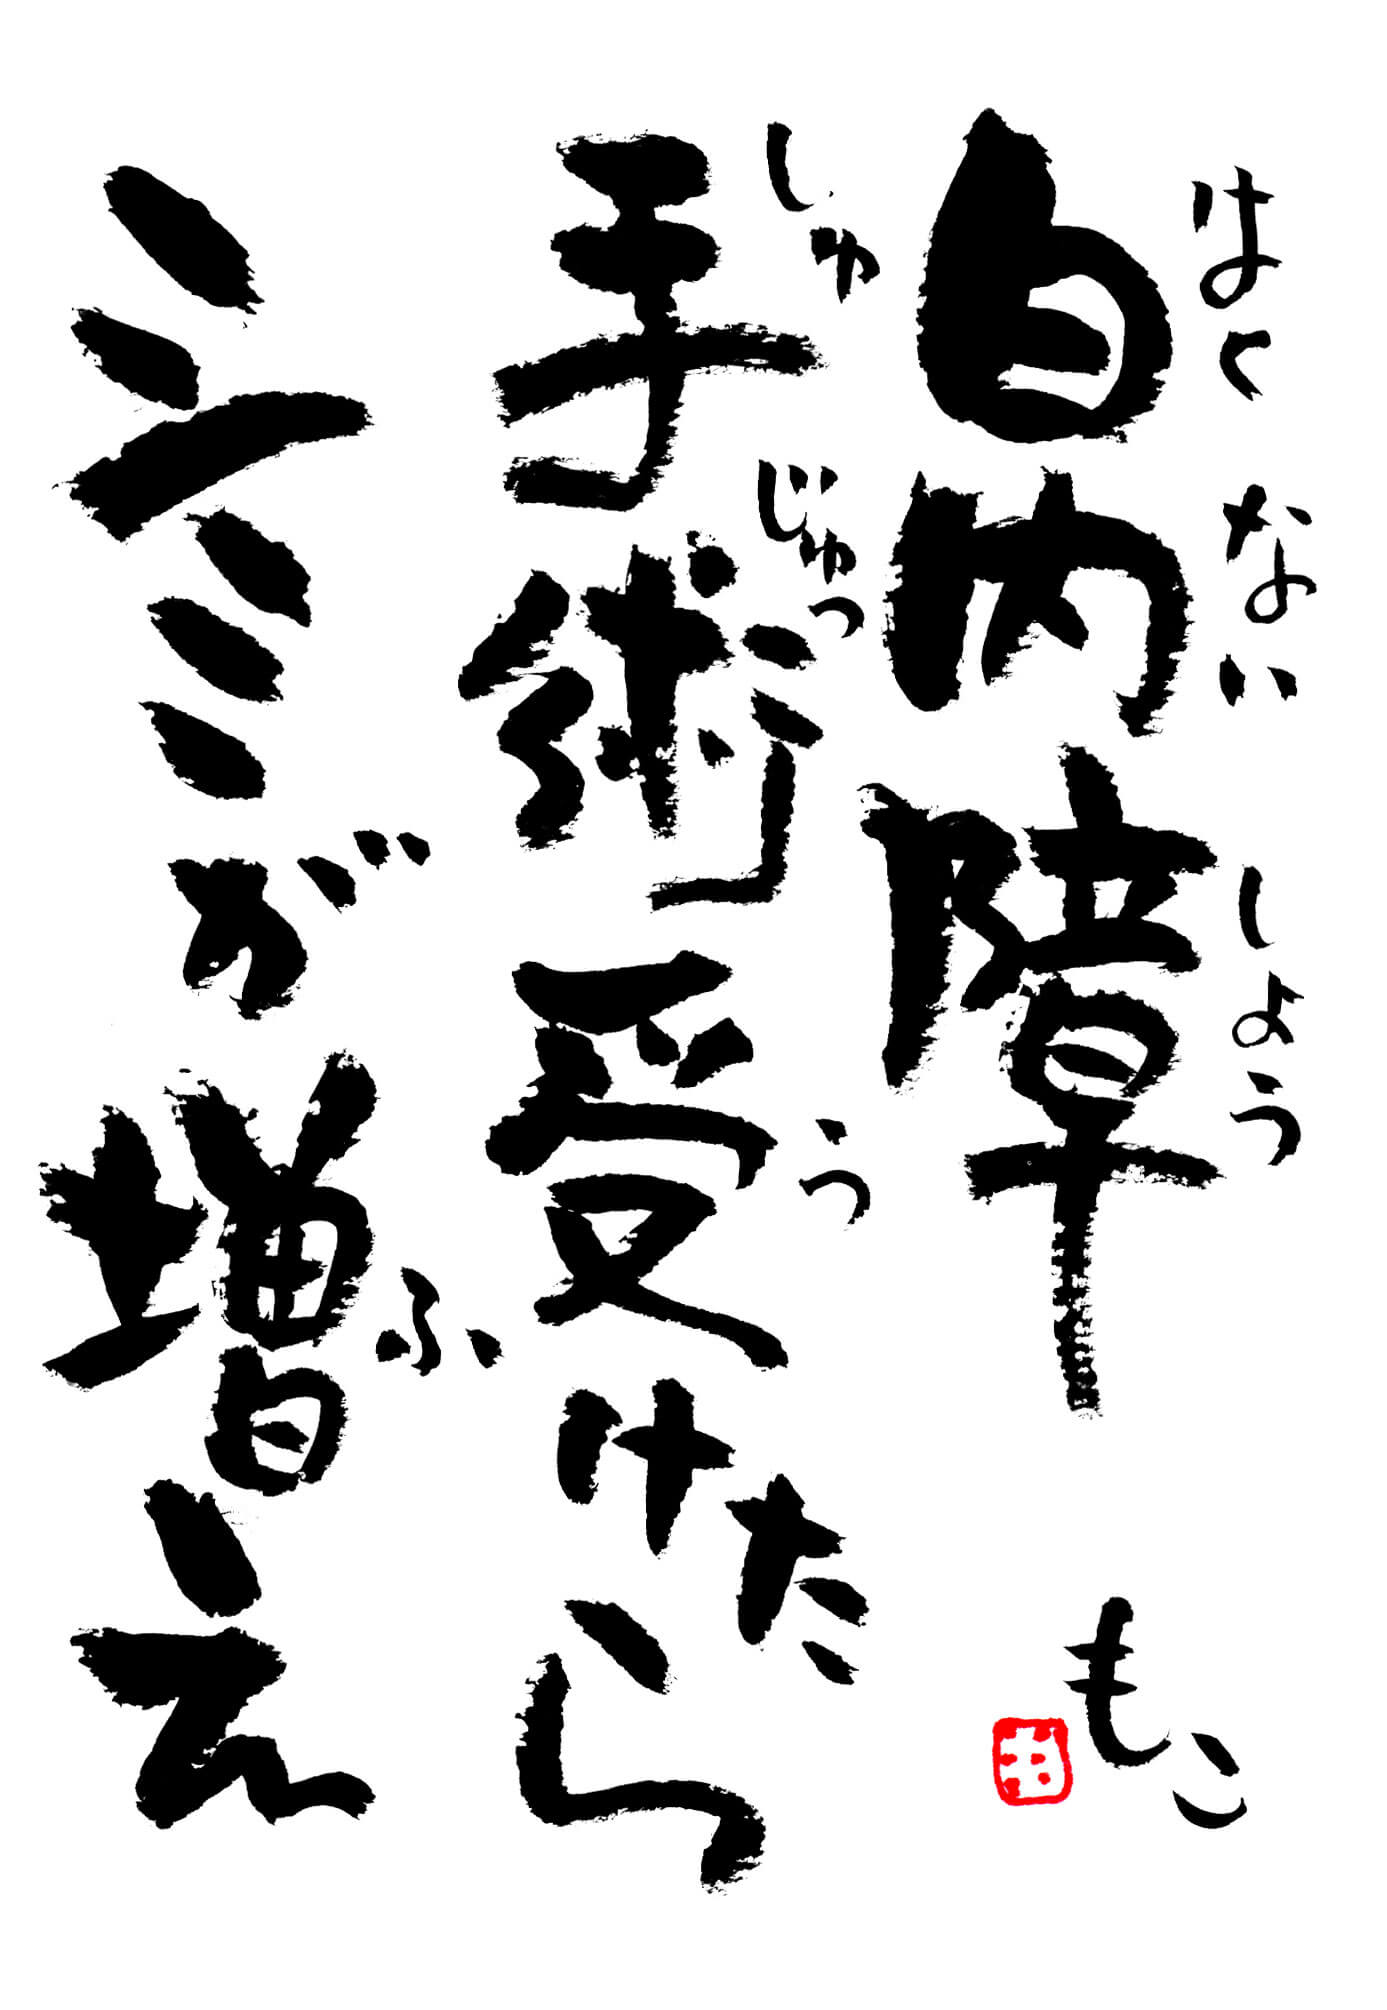 はくないしょう
白内障
しゅじゅつう
手術受けたら
ふ
シミが増え
もこ